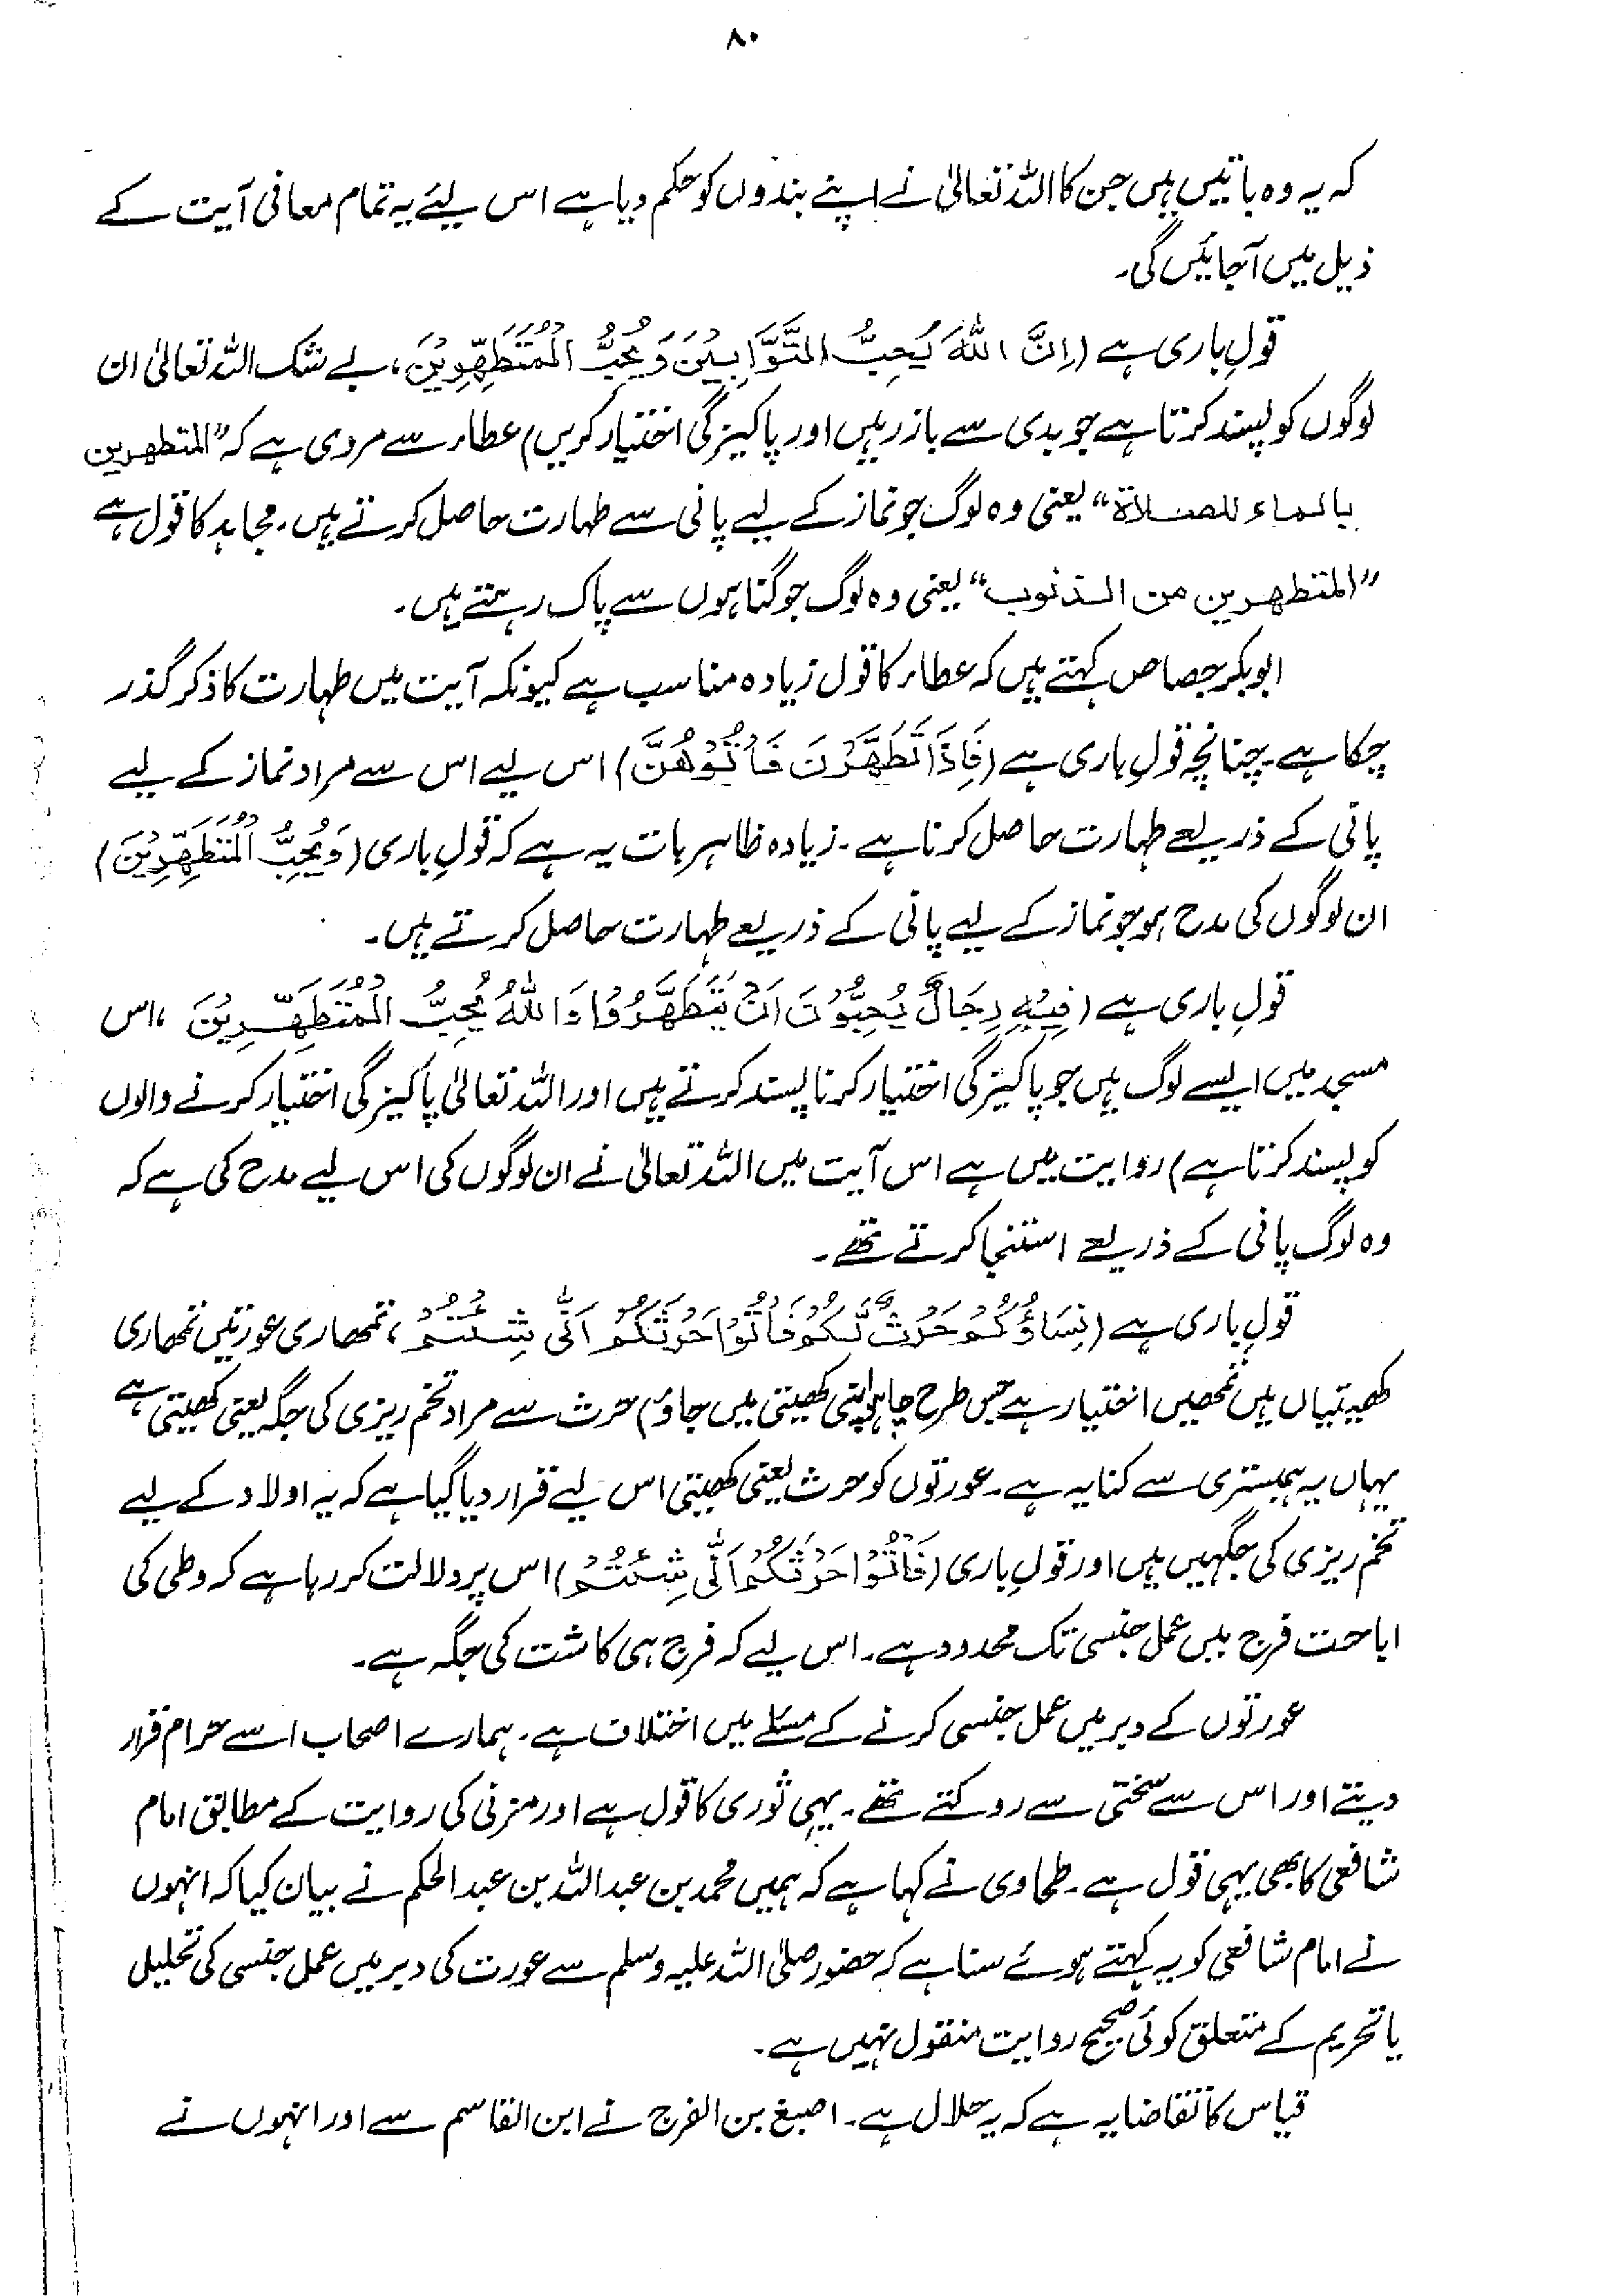 ۸۰
کہ یہ وہ باتیں ہیں جن کا اللہ تعالیٰ نے اپنے بندوں کو حکم دیا ہے اس لیئے یہ تمام معافی آیت کے
ذیل میں آجائیں گی۔
قولِ باری ہے (اِنَّ اللّٰهَ یُحِبُّ التَّوَّابِیْنَ وَیُحِبُّ الْمُتَطَهِّرِیْنَ، بے شک اللہ تعالیٰ ان
لوگوں کو پسند کرتا ہے جو بدی سے باز رہیں اور پاکیزگی اختیار کریں) عطاء سے مروی ہے کہ "المتطهرین
بالماء للصلاة" یعنی وہ لوگ جو نماز کے لیے پانی سے طہارت حاصل کرتے ہیں۔ مجاہد کا قول ہے
"المتطهرین من الذنوب" یعنی وہ لوگ جو گناہوں سے پاک رہتے ہیں۔
ابوبکر جصاص کہتے ہیں کہ عطاء کا قول زیادہ مناسب ہے کیونکہ آیت میں طہارت کا ذکر گذر
چکا ہے۔ چنانچہ قولِ باری ہے (فَاِذَا تَطَهَّرْنَ فَأْتُوْهُنَّ) اس لیے اس سے مراد نماز کے لیے
پانی کے ذریعے طہارت حاصل کرنا ہے۔ زیادہ ظاہر بات یہ ہے کہ قولِ باری (وَیُحِبُّ الْمُتَطَهِّرِیْنَ)
ان لوگوں کی مدح ہو جو نماز کے لیے پانی کے ذریعے طہارت حاصل کرتے ہیں۔
قولِ باری ہے (فِیْهِ رِجَالٌ یُحِبُّوْنَ اَنْ یَّتَطَهَّرُوْا وَاللّٰهُ یُحِبُّ الْمُتَطَهِّرِیْنَ، اس
مسجد میں ایسے لوگ ہیں جو پاکیزگی اختیار کرنا پسند کرتے ہیں اور اللہ تعالیٰ پاکیزگی اختیار کرنے والوں
کو پسند کرتا ہے) روایت میں ہے اس آیت میں اللہ تعالیٰ نے ان لوگوں کی اس لیے مدح کی ہے کہ
وہ لوگ پانی کے ذریعے استنجا کرتے تھے۔
قولِ باری ہے (نِسَاؤُکُمْ حَرْثٌ لَّکُمْ فَأْتُوْا حَرْثَکُمْ اَنّٰی شِئْتُمْ، تمھاری عورتیں تمھاری
کھیتیاں ہیں تمھیں اختیار ہے جس طرح چاہو اپنی کھیتی میں جاؤ) حرث سے مراد تخم ریزی کی جگہ یعنی کھیتی ہے
یہاں یہ ہمبستری سے کنایہ ہے۔ عورتوں کو حرث یعنی کھیتی اس لیے قرار دیا گیا ہے کہ یہ اولاد کے لیے
تخم ریزی کی جگہیں ہیں اور قولِ باری (فَأْتُوْا حَرْثَکُمْ اَنّٰی شِئْتُمْ) اس پر دلالت کر رہا ہے کہ وطی کی
اباحت فرج میں عمل جنسی تک محدود ہے۔ اس لیے کہ فرج ہی کاشت کی جگہ ہے۔
عورتوں کے دبر میں عمل جنسی کرنے کے مسئلے میں اختلاف ہے۔ ہمارے اصحاب اسے حرام قرار
دیتے اور اس سے سختی سے روکتے تھے۔ یہی ثوری کا قول ہے اور مزنی کی روایت کے مطابق امام
شافعی کا بھی یہی قول ہے۔ طحاوی نے کہا ہے کہ ہمیں محمد بن عبد اللہ بن عبد الحکم نے بیان کیا کہ انہوں
نے امام شافعی کو یہ کہتے ہوئے سنا ہے کہ حضور صلی اللہ علیہ وسلم سے عورت کی دبر میں عمل جنسی کی تحلیل
یا تحریم کے متعلق کوئی صحیح روایت منقول نہیں ہے۔
قیاس کا تقاضا یہ ہے کہ یہ حلال ہے۔ اصبغ بن الفرج نے ابن القاسم سے اور انہوں نے